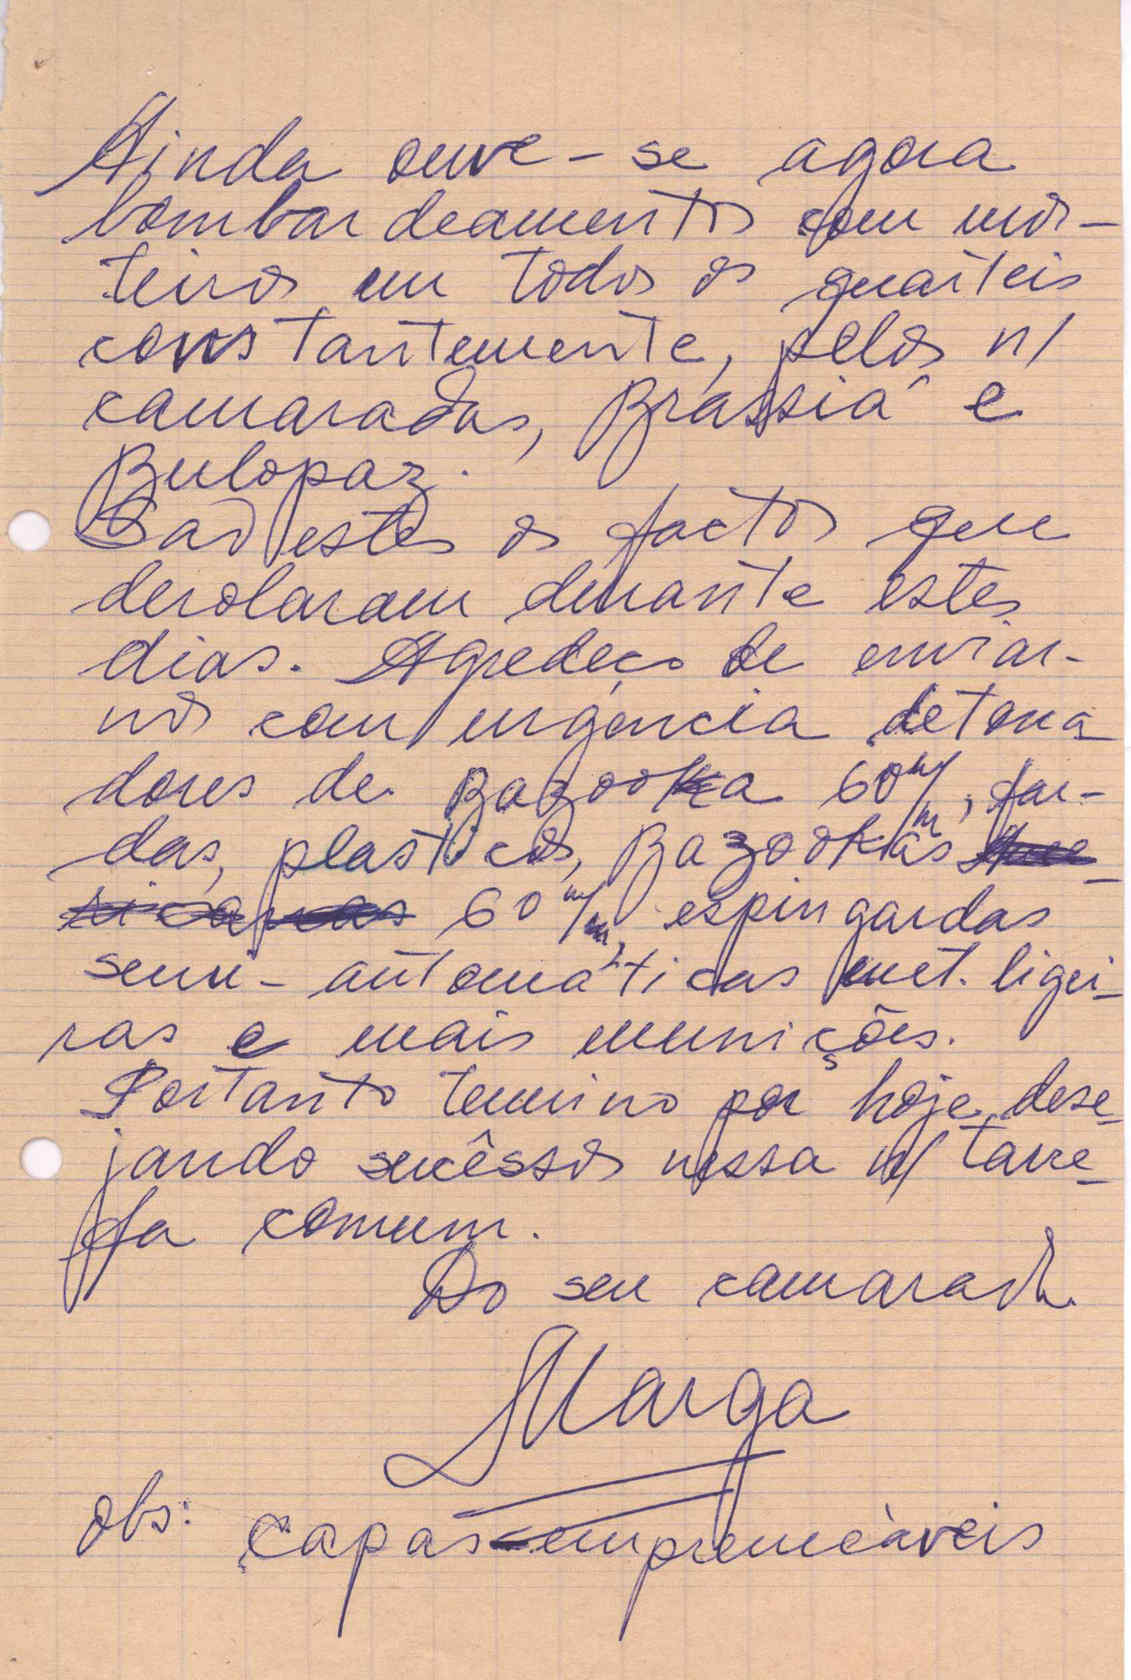 Ainda ouve-se agora
bombardeamentos com mor-
teiros em todos os quarteis
constantemente, pelos n/
camaradas, Brassiá e
Bulopaz.
São estes os factos que
derolaram durante estes
dias. Agredeço de enviar-
nos com urgência detona
dores de Bazooka 60 m/m, far-
das, plasticos, Bazookas
60 m/m, espingardas
semi-automáticas met. ligei-
ras e mais munições.
Portanto termino por hoje dese-
jando sucêssos nessa n/ tare-
fa comum.
Do seu camarada
Marga
obs: Capas